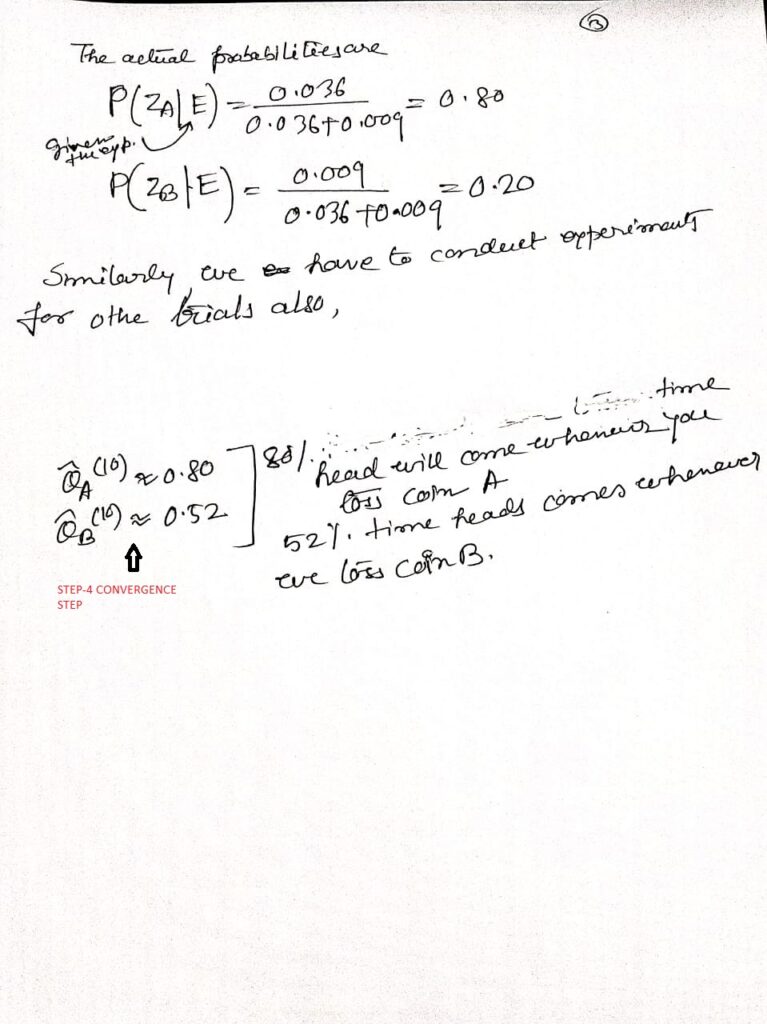 3
The actual probabilities are
P(Z_A|E) = 0.036 / 0.036+0.009 = 0.80
given
the exp.
P(Z_B|E) = 0.009 / 0.036+0.009 = 0.20
Similarly, we have to conduct experiments
for othe trials also,
θ̂_A^(10) ≈ 0.80
θ̂_B^(10) ≈ 0.52
80%. time
head will come whenever you
toss coin A
52%. time heads comes whenever
we toss coin B.
STEP-4 CONVERGENCE
STEP